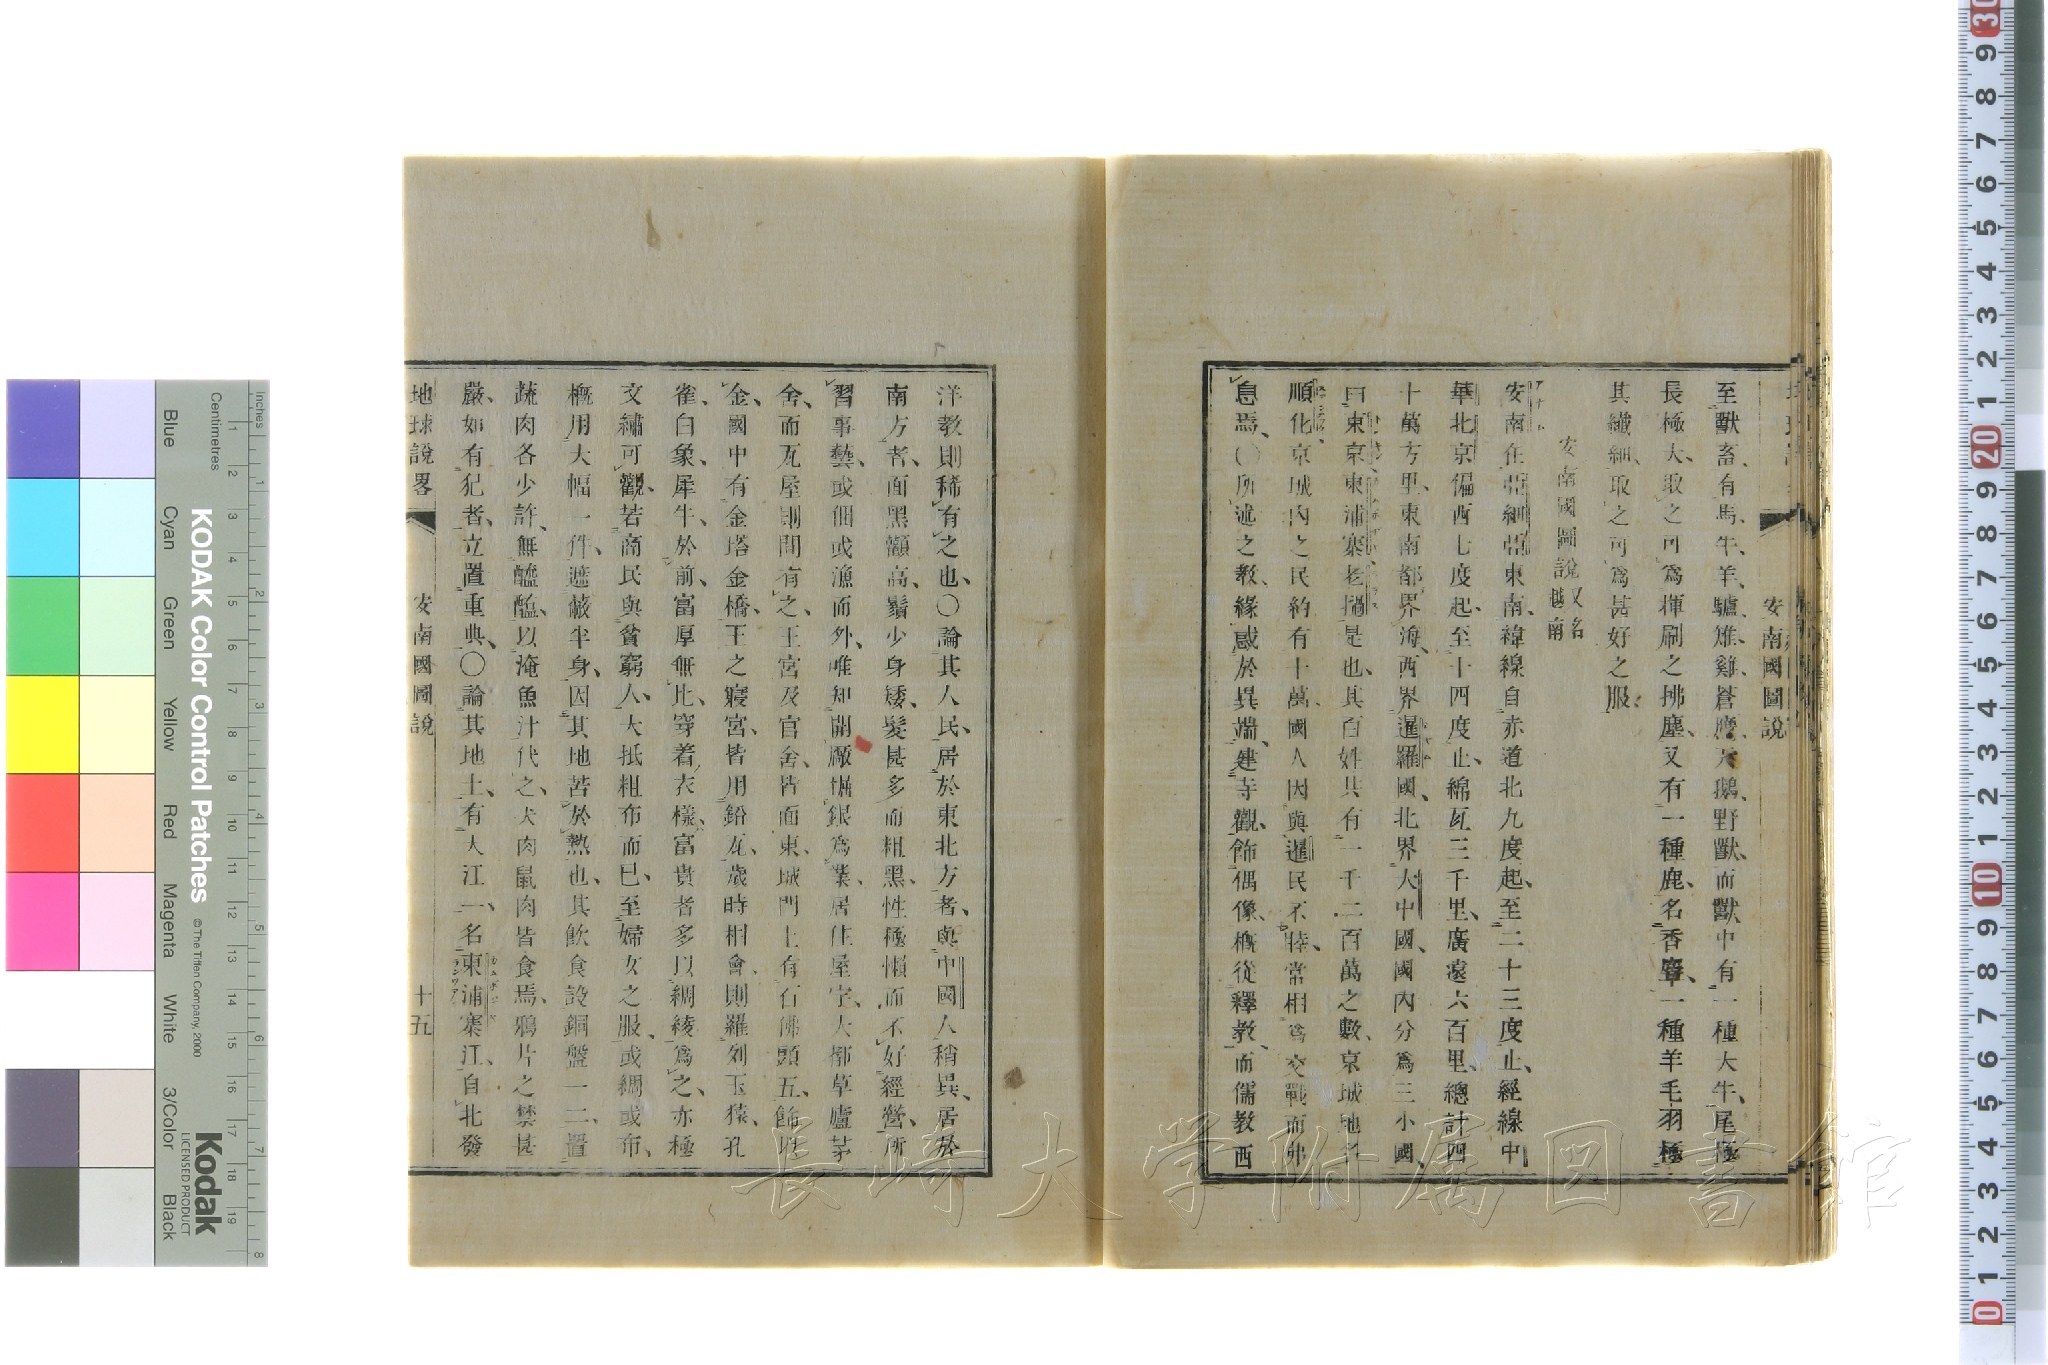 安南國圖說
至獸畜、有馬、牛、羊、驢、雉、雞、蒼鷹、天鵝、野獸、而獸中有一種大牛、尾極
長極大、取之可爲揮刷之拂塵、又有一種鹿、名香麞、一種羊毛羽極
其纖細、取之可爲甚好之服
安南國圖說 又名越南
安南在亞細亞東南、緯線自赤道北九度起、至二十三度止、經線中
華北京偏西七度起、至十四度止、綿亙三千里、廣遠六百里、總計四
十萬方里、東南都界海、西界暹羅國、北界大中國、國內分爲三小國、
曰東京、東浦寨、老撾是也、其百姓共有一千二百萬之數、京城地名
順化、京城內之民約有十萬、國人因與暹民不睦、常相爲交戰而弗
息焉、〇所述之教、緣惑於異端、建寺觀、飾偶像、槪從釋教、而儒教西
洋教則稀有之也、〇論其人民、居於東北方者、與中國人稍異、居於
南方者、面黑顴高、鬚少身矮、髮甚多而粗黑、性極懶而不好經營、所
習事藝、或佃或漁而外、唯知開厰掘銀爲業、居住屋宇、大都草廬茅
舍、而瓦屋則間有之、王宮及官舍、皆面東、城門上有石佛頭五、飾以
金、國中有金塔金橋、王之寢宮、皆用鉛瓦、歲時相會、則羅列玉猿、孔
雀、白象、犀牛、於前、富厚無比、穿着衣樣、富貴者多以綢綾爲之、亦極
文繡可觀、若商民與貧窮人、大抵粗布而已、至婦女之服、或綢或布、
槪用大幅一件、遮蔽半身、因其地苦於熱也、其飲食設銅盤一二、置
蔬肉各少許、無醯醢、以淹魚汁代之、犬肉鼠肉皆食焉、鴉片之禁甚
嚴、如有犯者、立置重典、〇論其地土、有大江、一名東浦寨江、自北發
地球說畧 安南國圖說 十五
長崎大学附属図書館
KODAK Color Control Patches © The Tiffen Company, 2000
Kodak
LICENSED PRODUCT
Inches
Centimetres
Blue Cyan Green Yellow Red Magenta White 3/Color Black